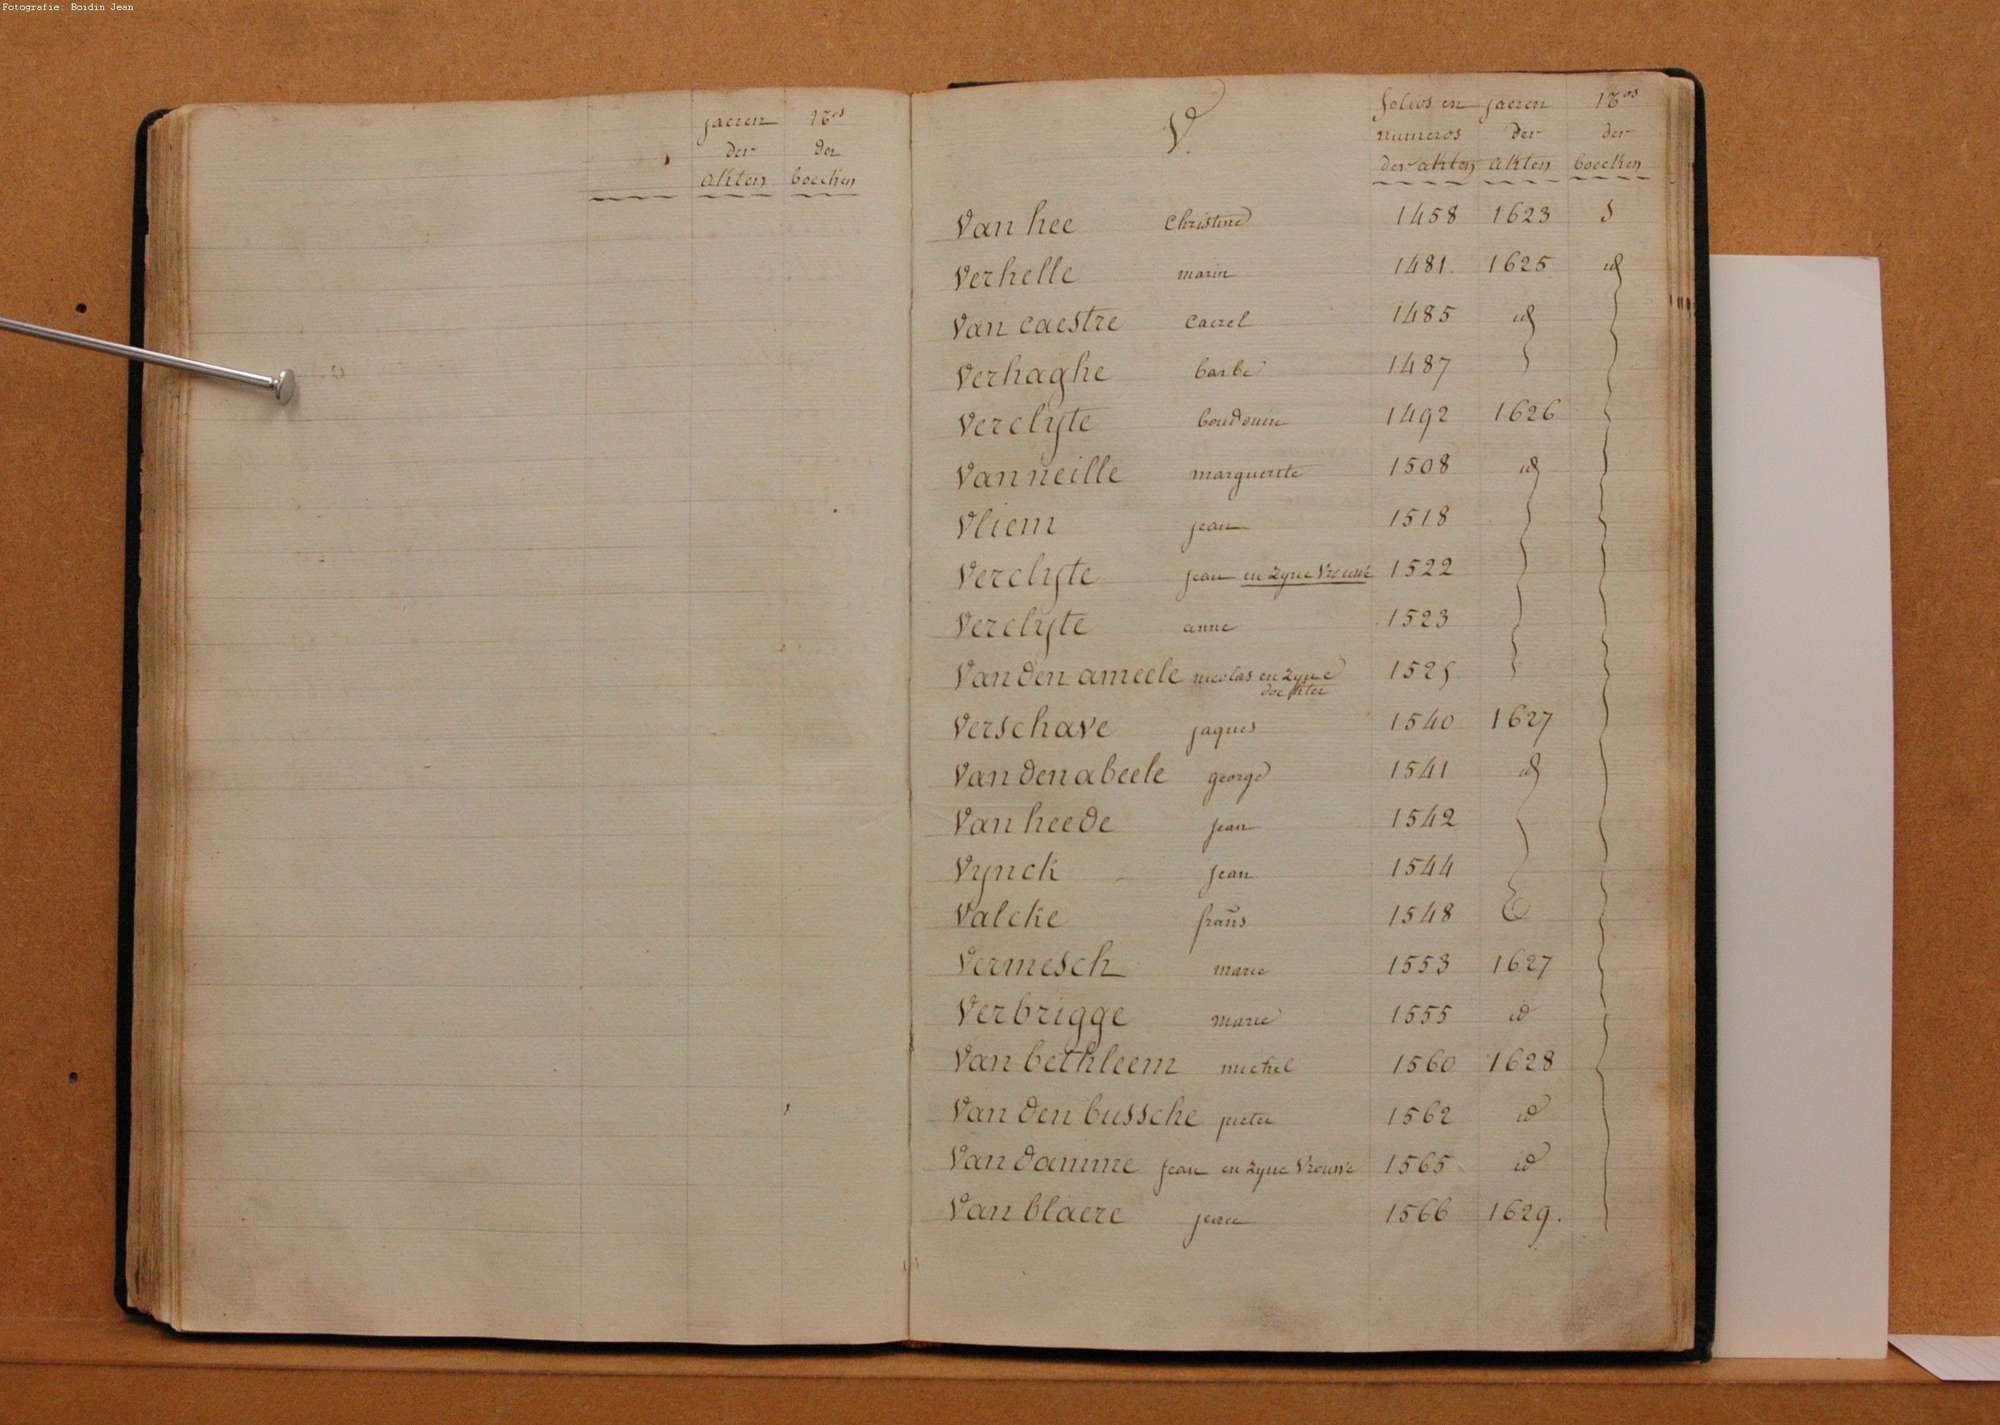 Fotografie: Boidin Jean
jaeren Nos
der der
akten boecken
V.
folios en jaeren Nos
numeros der der
der akten akten boecken
Van hee Christine 1458 1623 5
Verhelle marin 1481. 1625 id
Van caestre Caerel 1485 id
Verhaghe barbe 1487
Verclyte boudouin 1492 1626
Van neille marguerite 1508 id
Vliem jean 1518
Verclyte jean en zyne Vrouwe 1522
Verclyte anne 1523
Van den ameele nicolas en zyne 1525
dochter
Verschave jaques 1540 1627
Van den abeele george 1541 id
Van heede jean 1542
Vynck jean 1544
Valcke frans 1548
Vermesch marie 1553 1627
Verbrigge marie 1555 id
Van bethleem michel 1560 1628
Van den bussche pieter 1562 id
Van damme jean en zyne Vrouwe 1565 id
Van blaere jean 1566 1629.